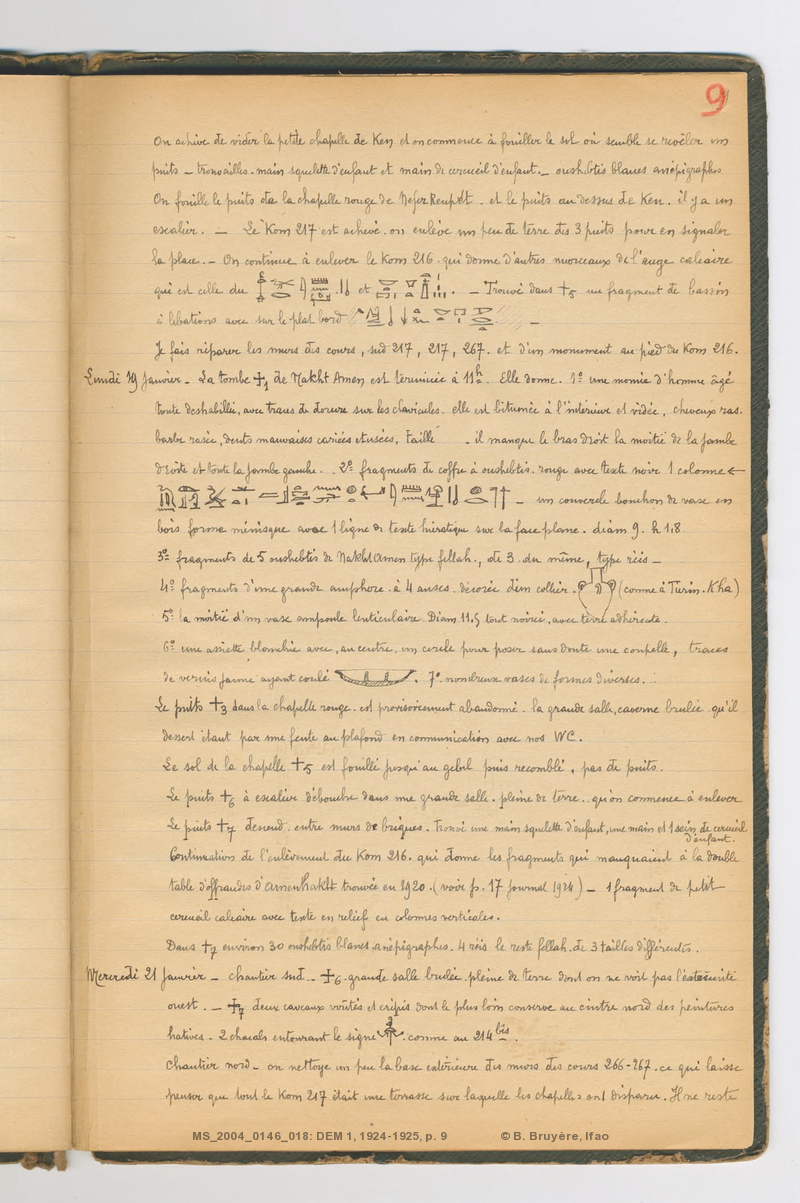 9
On achève de vider la petite chapelle de Ken et on commence à fouiller le sol où semble se révéler un
puits – trouvailles - main squelette d'enfant et main de cercueil d'enfant. – oushebtis blancs anépigraphes
On fouille le puits de la chapelle rouge de . et le puits au dessus de Ken. il y a un
escalier. – Le Kom 217 est achevé. on enlève un peu de terre des 3 puits pour en signaler
la place. – On continue à enlever le Kom 216. qui donne d'autres morceaux de l'auge calcaire
qui est celle du et . – Trouvé dans +5 un fragment de bassin
à libations avec sur le plat bord –
Je fais réparer les murs des cours, sud 217, 217, 267. et d'un monument au pied du Kom 216.
Lundi 19 Janvier - La tombe +1 de Nakht Amen est terminée à 11h. Elle donne. 1º une momie d'homme âgé
toute deshabillée, avec traces de dorure sur les clavicules. elle est bitumée à l'intérieur et vidée, cheveux ras.
barbe rasée, dents mauvaises cariées et usées, taille . il manque le bras droit la moitié de la jambe
droite et toute la jambe gauche. . 2º fragments de coffre à oushebtis. rouge avec texte noir 1 colonne ←
– un couvercle bouchon de vase en
bois forme ménisque avec 1 ligne de texte hiératique sur la face plane. diam 9. h 1.8
3º fragments de 5 oushebtis de Nakht Amen type fellah., de 3 du même, type réis –
4º fragments d'une grande amphore à 4 anses. décorée d'un collier. (comme à Turin. Kha)
5º la moitié d'un vase ampoule lenticulaire. Diam 11.5 tout noirci, avec terre adhérente.
6º une assiette blanchie avec, au centre, un cercle pour poser sans doute une coupelle, traces
de vernis jaune ayant coulé . 7º. nombreux vases de formes diverses. .
Le puits +3 dans la chapelle rouge. est provisoirement abandonné. la grande salle, caverne brulée qu'il
dessert étant par une fente au plafond en communication avec nos WC.
Le sol de la chapelle +5 est fouillé jusqu'au gebel puis recomblé, pas de puits.
Le puits +6 à escalier débouche dans une grande salle. pleine de terre. qu'on commence à enlever
Le puits +7 descend. entre murs de briques. Trouvé une main squelette d'enfant, une main et 1 sein de cercueil
d'enfant.
Continuation de l'enlèvement du Kom 216. qui donne les fragments qui manquaient à la double
table d'offrandes d'Amennakht trouvée en 1920. (voir p. 17 Journal 1924) – 1 fragment de petit
cercueil calcaire avec texte en relief en colonnes verticales.
Dans +7 environ 30 oushebtis blancs, anépigraphes. 4 réis le reste fellah. de 3 tailles différentes.
Mercredi 21 Janvier – chantier sud. – +6. grande salle brulée pleine de terre dont on ne voit pas l'extrémité
ouest. – +7 deux caveaux voûtés et crépis dont le plus loin conserve au cintre nord des peintures
hatives. - 2 chacals entourant le signe comme au 214 bis.
Chantier nord – on nettoye un peu la base extérieure des murs des cours 266-267. ce qui laisse
penser que tout le Kom 217 était une terrasse sur laquelle les chapelles ont disparu. Il ne reste
MS_2004_0146_018: DEM 1, 1924-1925, p. 9 © B. Bruyère, Ifao